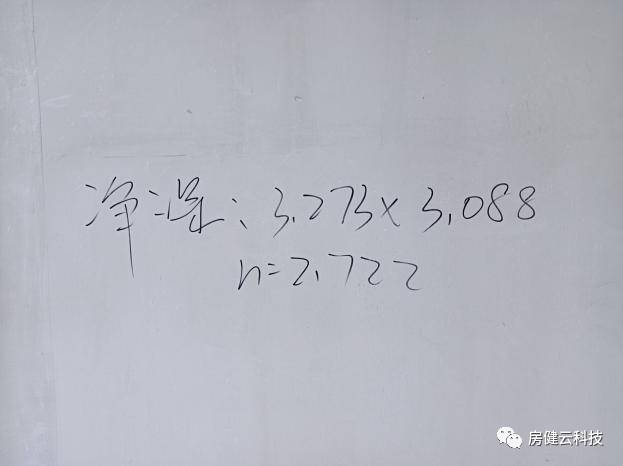 净湿:3.273×3.088
h=2.722
房健云科技